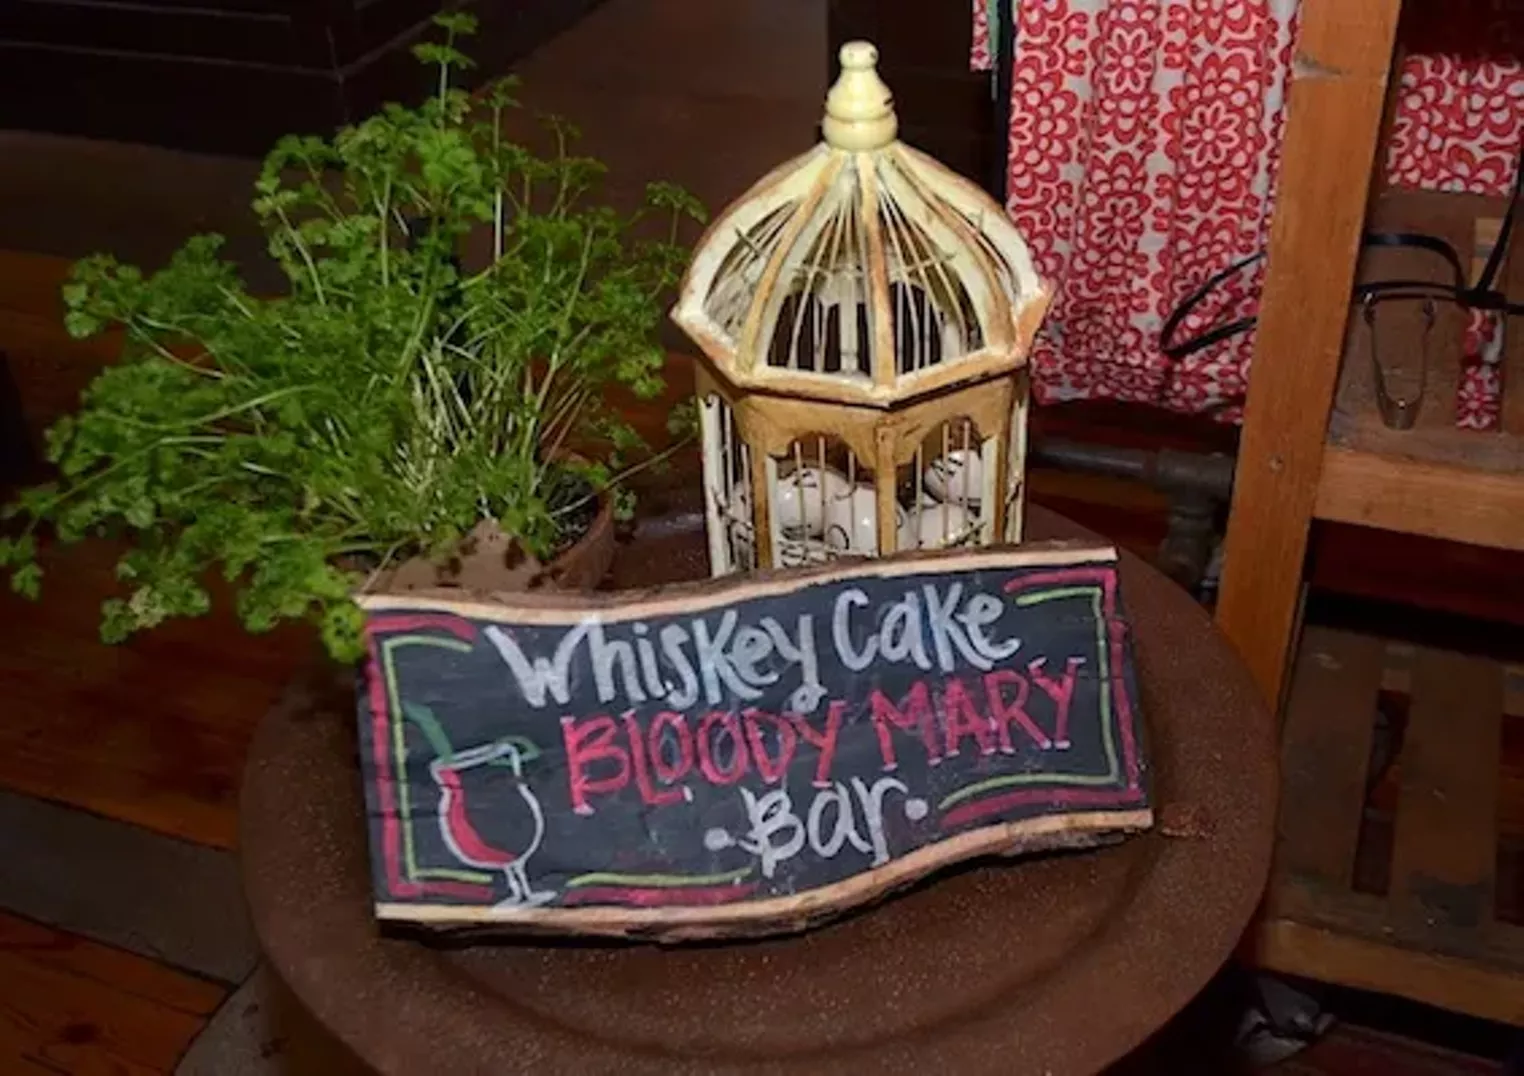 Whiskey Cake
BLOODY MARY
• Bar •